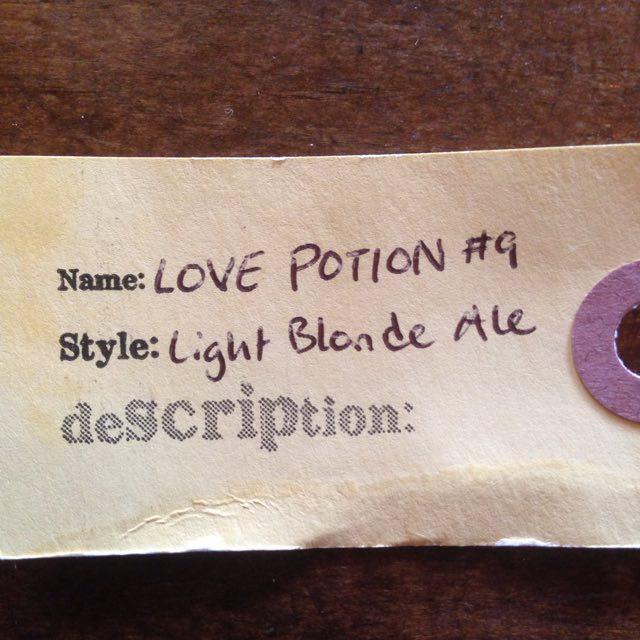 Name: LOVE POTION #9
Style: Light Blonde Ale
description: